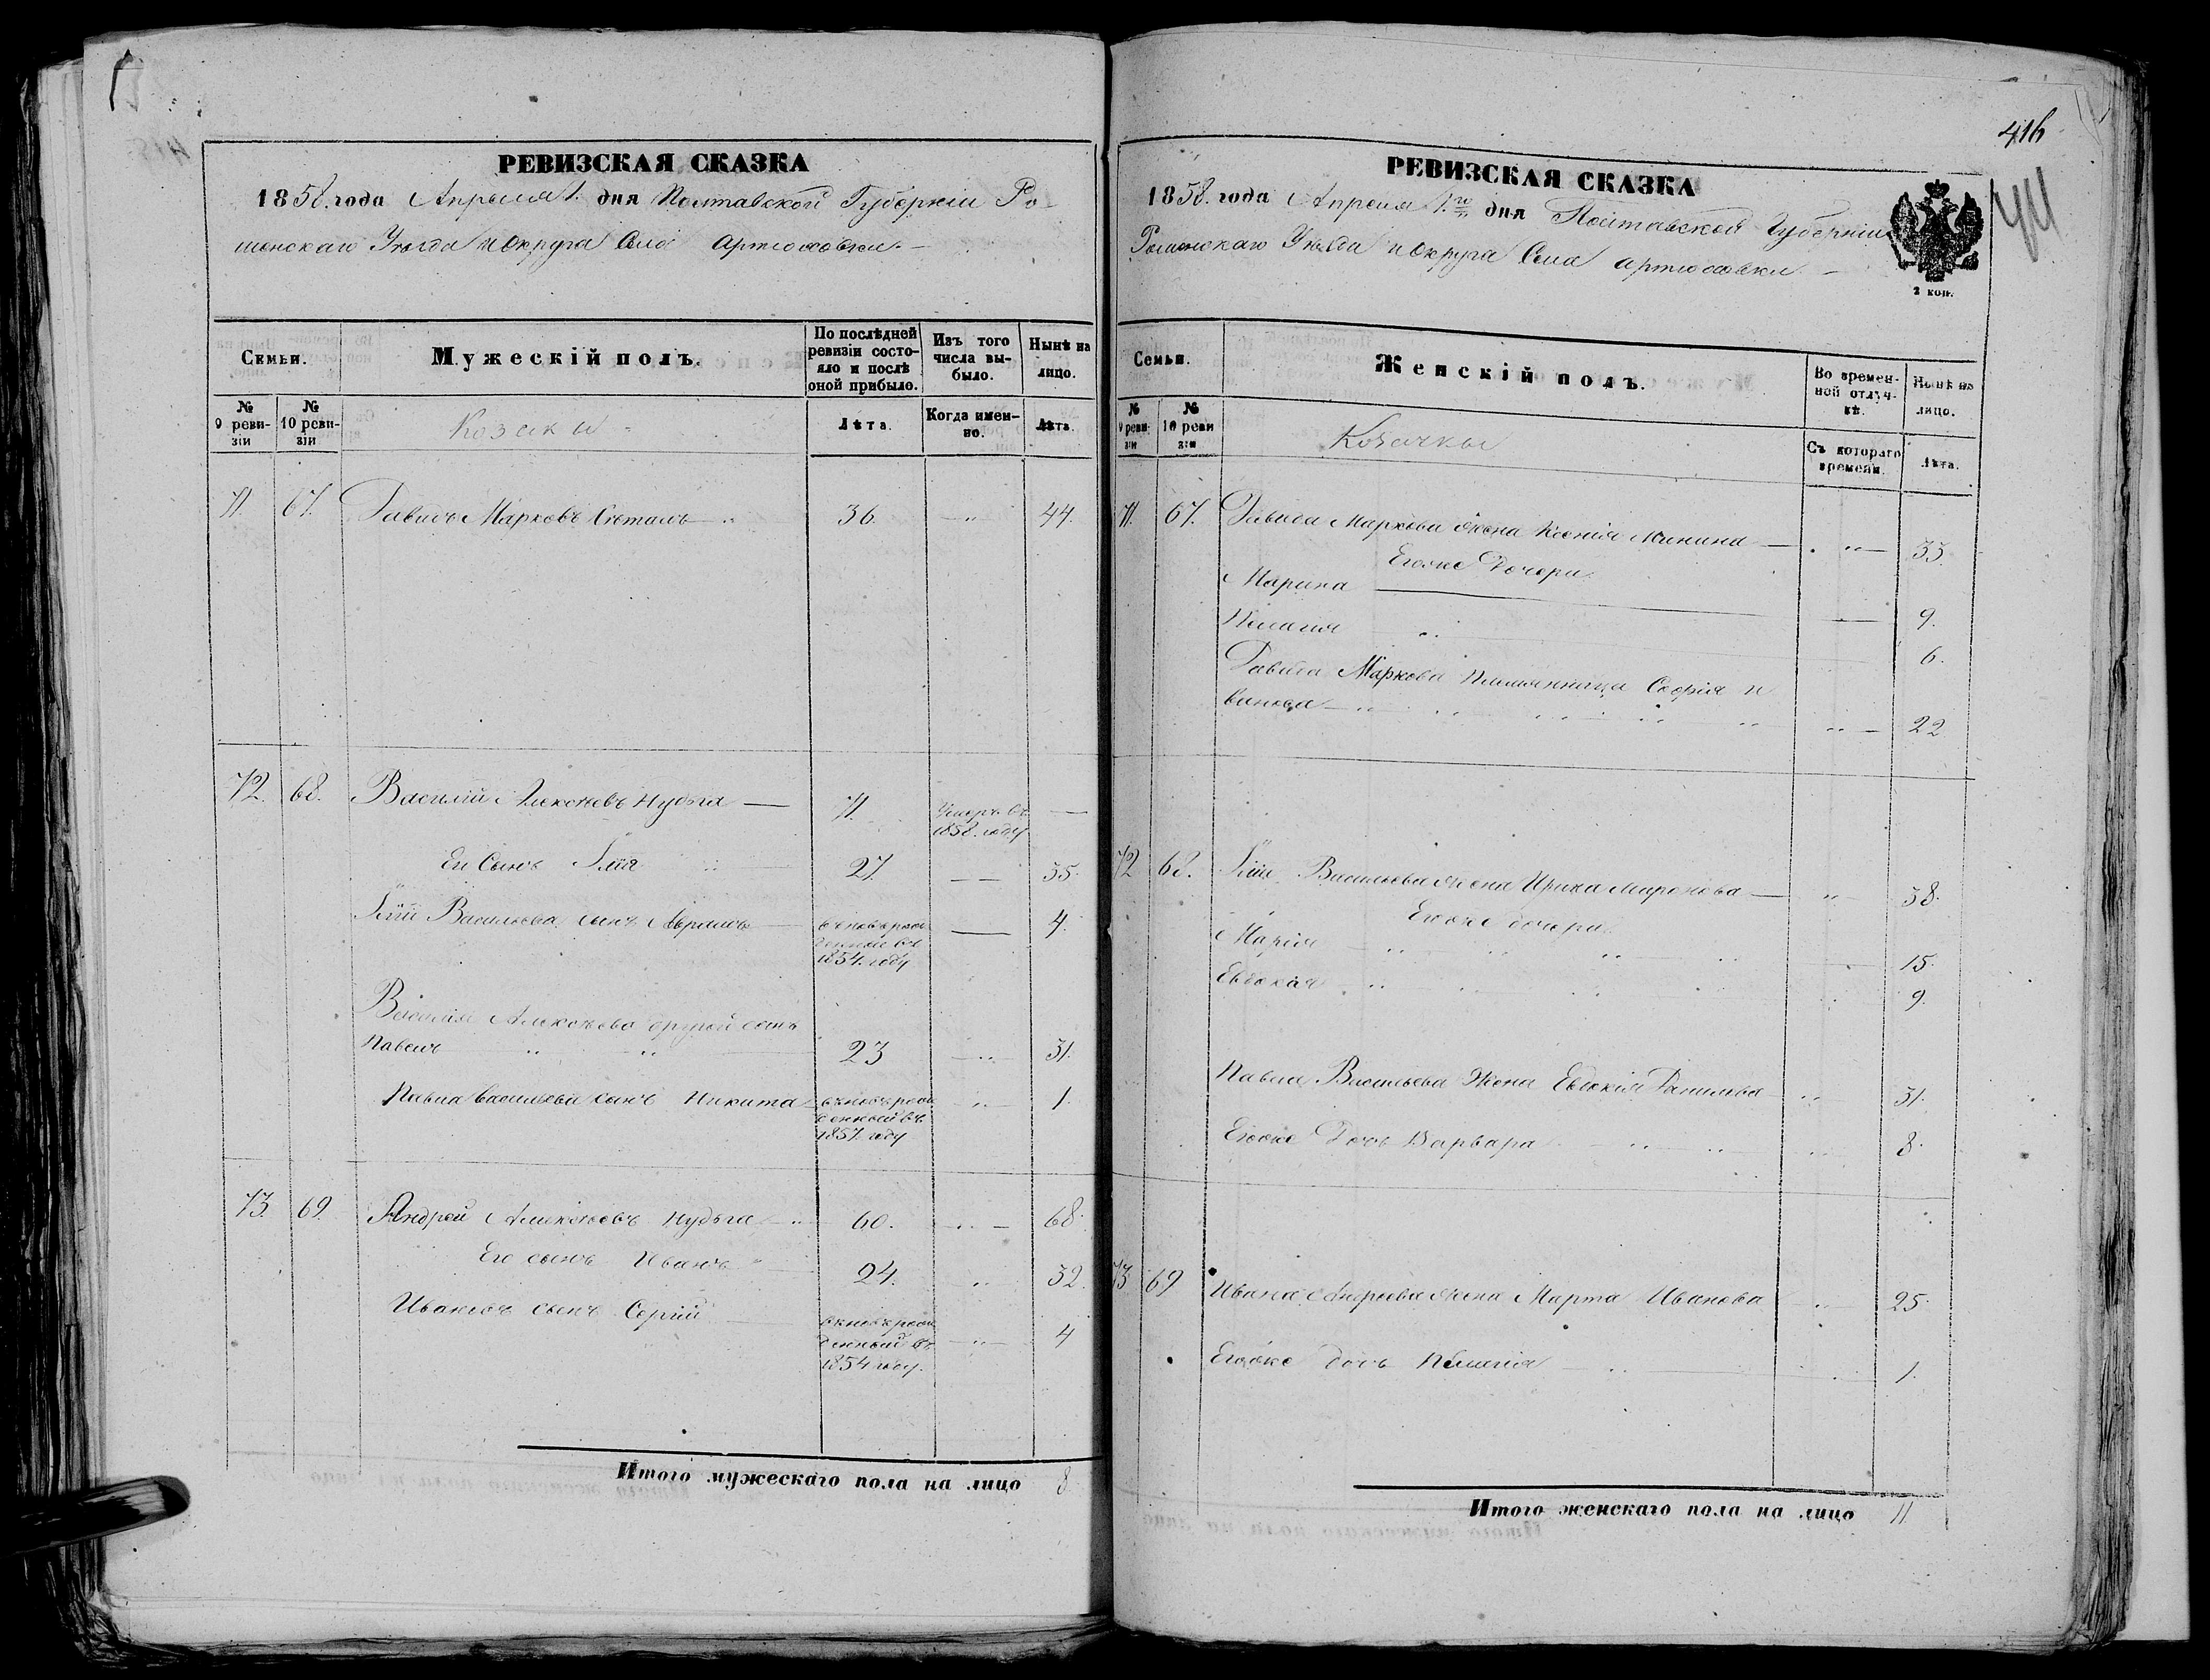 РЕВИЗСКАЯ СКАЗКА
1858. года Апреля 1. дня Полтавской Губерніи Ро-
менскаго Уѣзда и Округа Села Артюховки.
Семьи.
Мужескій полъ.
По послѣдней ревизіи состо-
яло и послѣ оной прибыло.
Изъ того числа вы-
было.
Нынѣ на лицо.
№ 9 реви-
зіи
№ 10 реви-
зіи
Козаки
Лѣта.
Когда имен-
но.
Лѣта.
71. 67. Давидъ Марковъ 36. 44.
72. 68. Василій Алексѣевъ Нудьга 71. Умеръ въ
1858. году
Его Сынъ Илія 27. 35.
Иліи Васильева сынъ Абрамъ вновьрож-
денный въ
1854. году 4.
Василія Алексѣева другой сынъ
Павелъ 23 31.
Павла Васильева сынъ Никита вновьрож-
денный въ
1857. году 1.
73. 69. Андрей Алексѣевъ Нудьга 60. 68.
Его сынъ Иванъ 24. 32.
Ивановъ сынъ Сергій вновьрож-
денный въ
1854 году. 4
Итого мужескаго пола на лицо 8
416
РЕВИЗСКАЯ СКАЗКА
1858. года Апреля 1.го дня Полтавской Губерніи
Роменскаго Уѣзда и Округа Села Артюховки.
2 коп.
Семьи.
Женскій полъ.
Во времен-
ной отлуч-
кѣ.
Нынѣ на лицо.
№ 9 реви-
зіи
№ 10 реви-
зіи
Козачки
Съ котораго времени.
Лѣта.
71. 67. Давида Маркова жена Ксенія Минина 35.
Егоже Дочери
Марина 9.
Пелагія 6.
Давида Маркова племянница Софія И
ванова 22
72 68. Иліи Васильева жена Ирина Миронова 38.
Егоже дочери
Марія 15.
Евдокія 9.
Павла Васильева Жена Евдокія Данилова 31.
Егоже Дочь Варвара 8.
73 69 Ивана Андреева жена Марта Иванова 25.
Егоже дочь Пелагія 1.
Итого женскаго пола на лицо 11